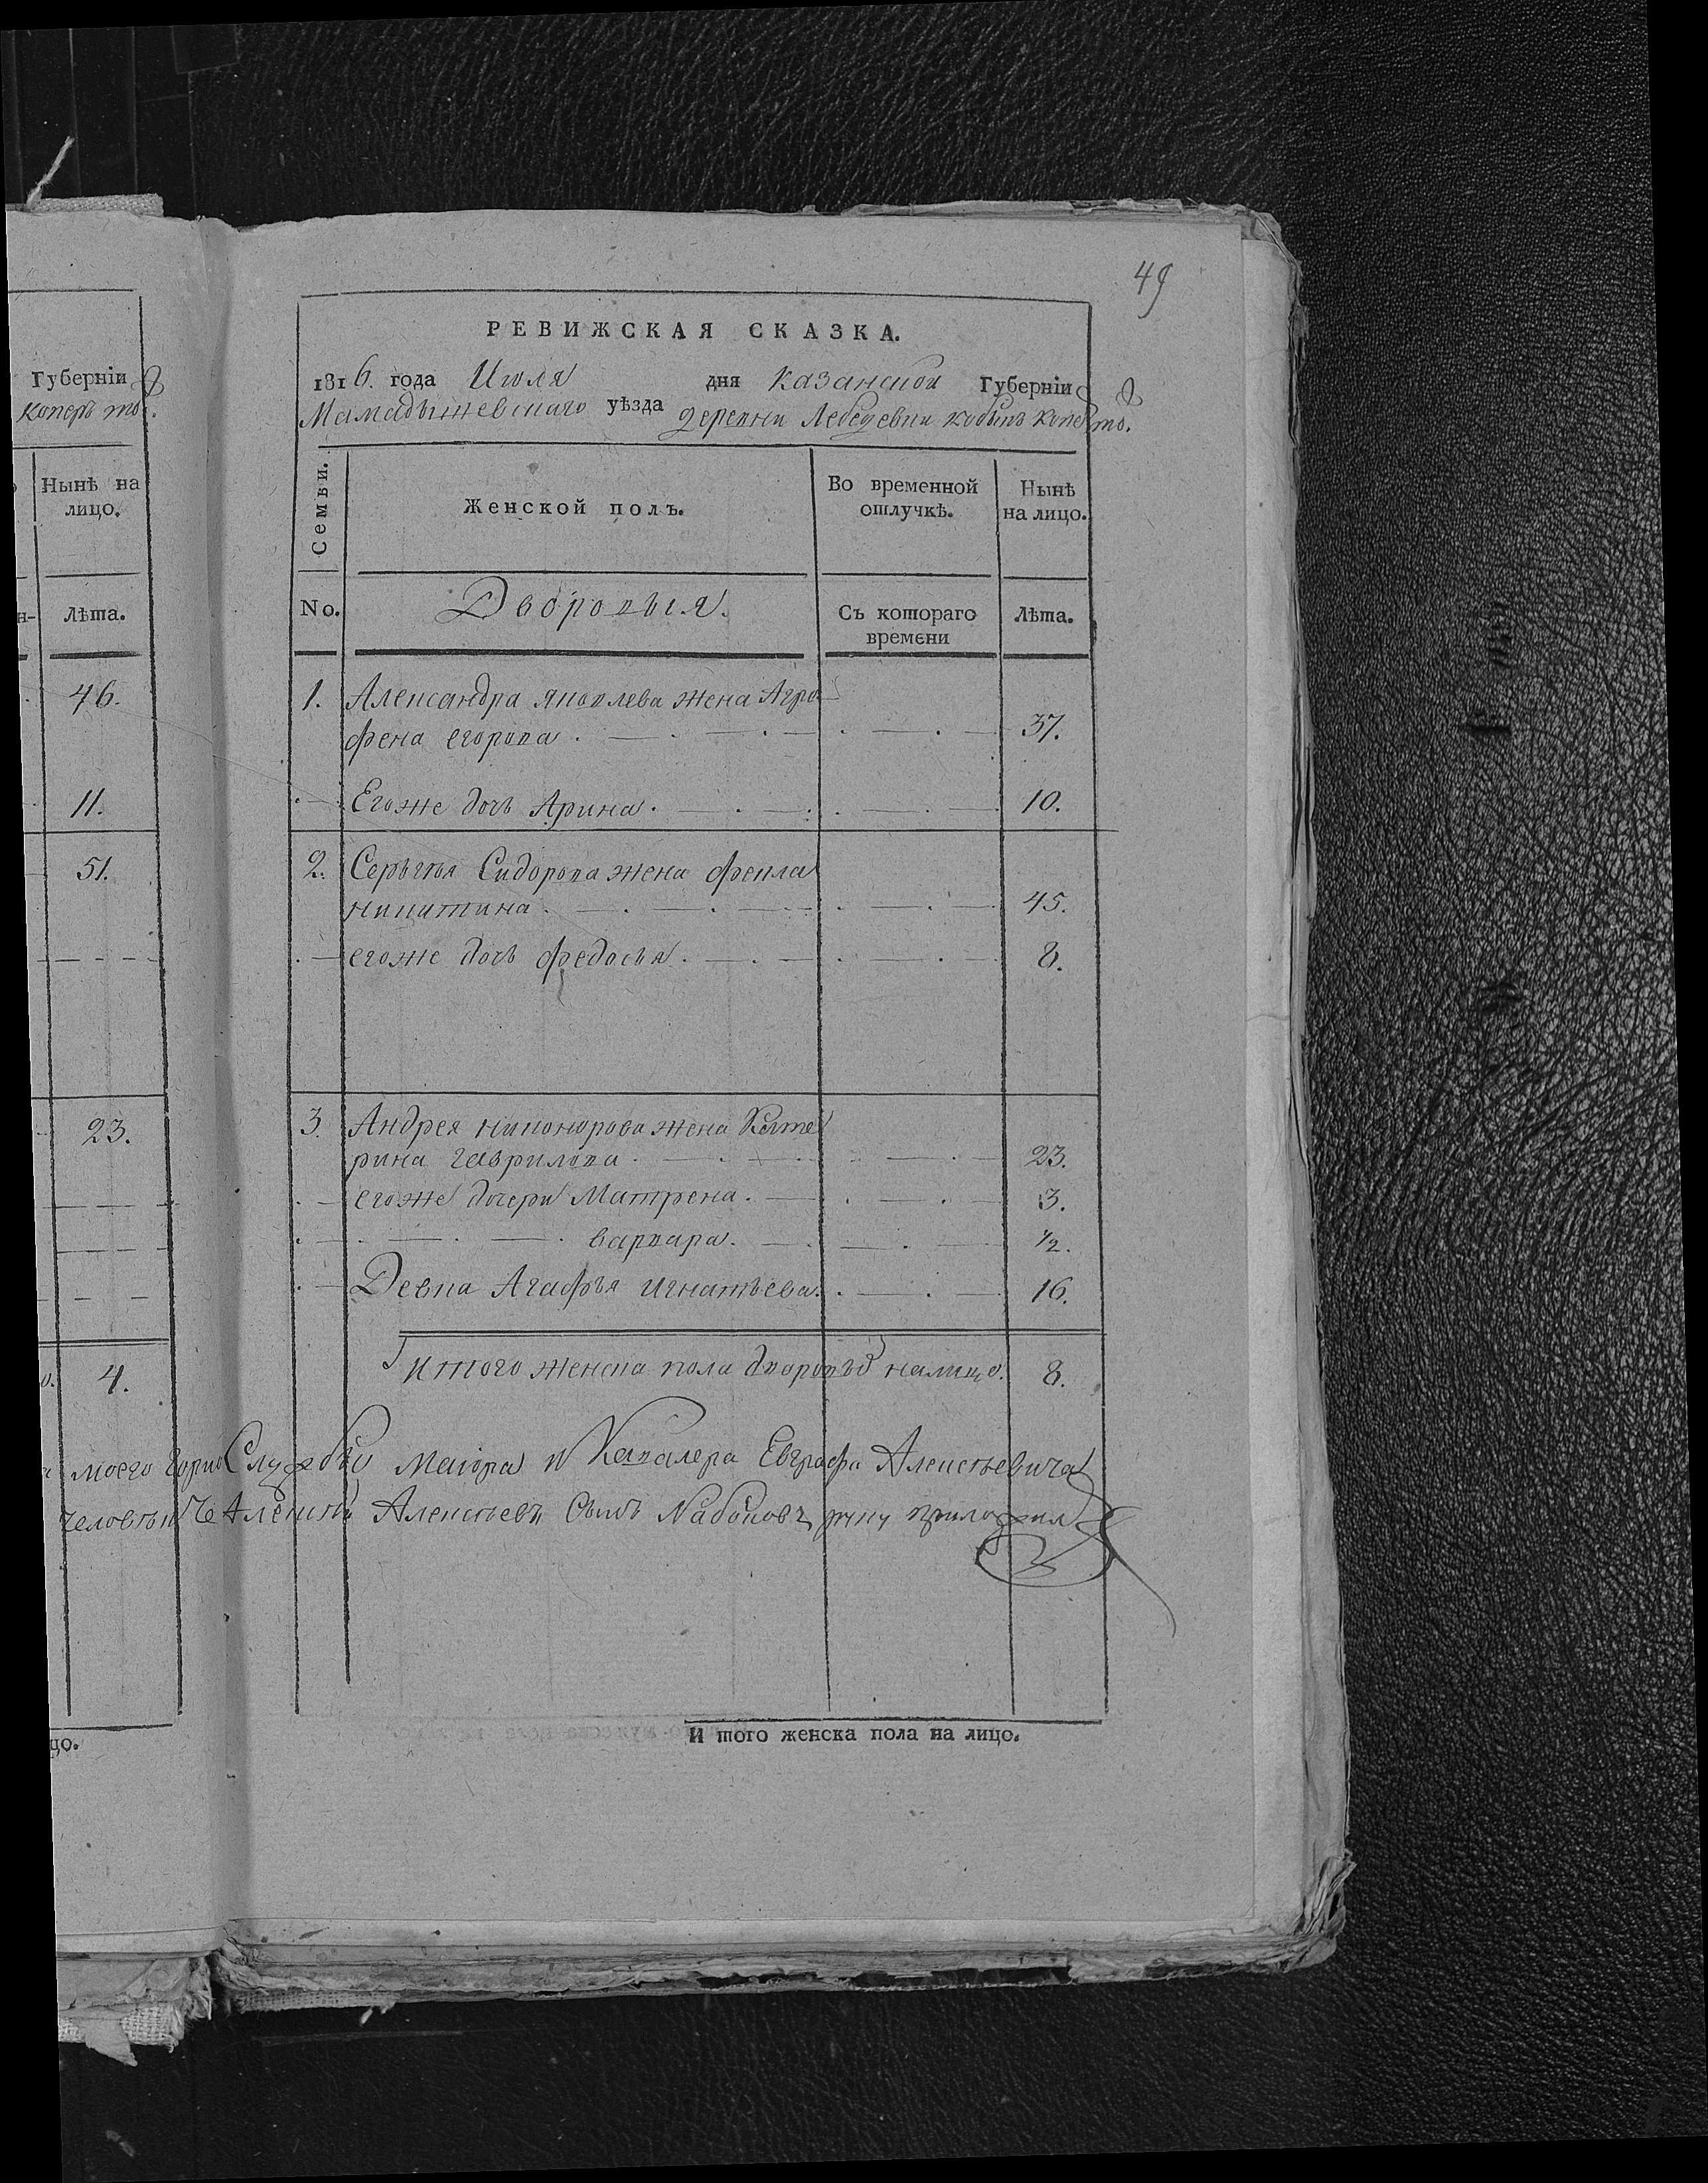 49
Губерніи
коперъ тоже.
Нынѣ на
лицо.
Лѣта.
46.
11.
51.
23.
4.
моего горно
человѣкъ
цо.
РЕВИЖСКАЯ СКАЗКА.
1816. года Июля дня казанской Губерніи
Мамадышевскаго уѣзда деревни Лебедевки
Семьи.
Женской полъ.
Во временной
отлучкѣ.
Нынѣ
на лицо.
No.
Дворовыя.
Съ котораго
времени
Лѣта.
1. Александра яковлева жена Агро
фена егорова. 37.
Егоже дочь Арина. 10.
2. Серьгѣя Сидорова жена фекла
никитина. 45.
егоже дочь федосья. 8.
3. Андрея никонорова жена Кате
рина гаврилова. 23.
егоже дочери Матрена. 3.
варвара. 1/2.
Девка Агафья игнатьева. 16.
итого женска пола дворовъ налицо. 8.
Службы маіора и Кавалера Евграфа Алексѣевича
Алексѣй Алексѣевъ Сынъ руку приложил
И того женска пола на лицо.